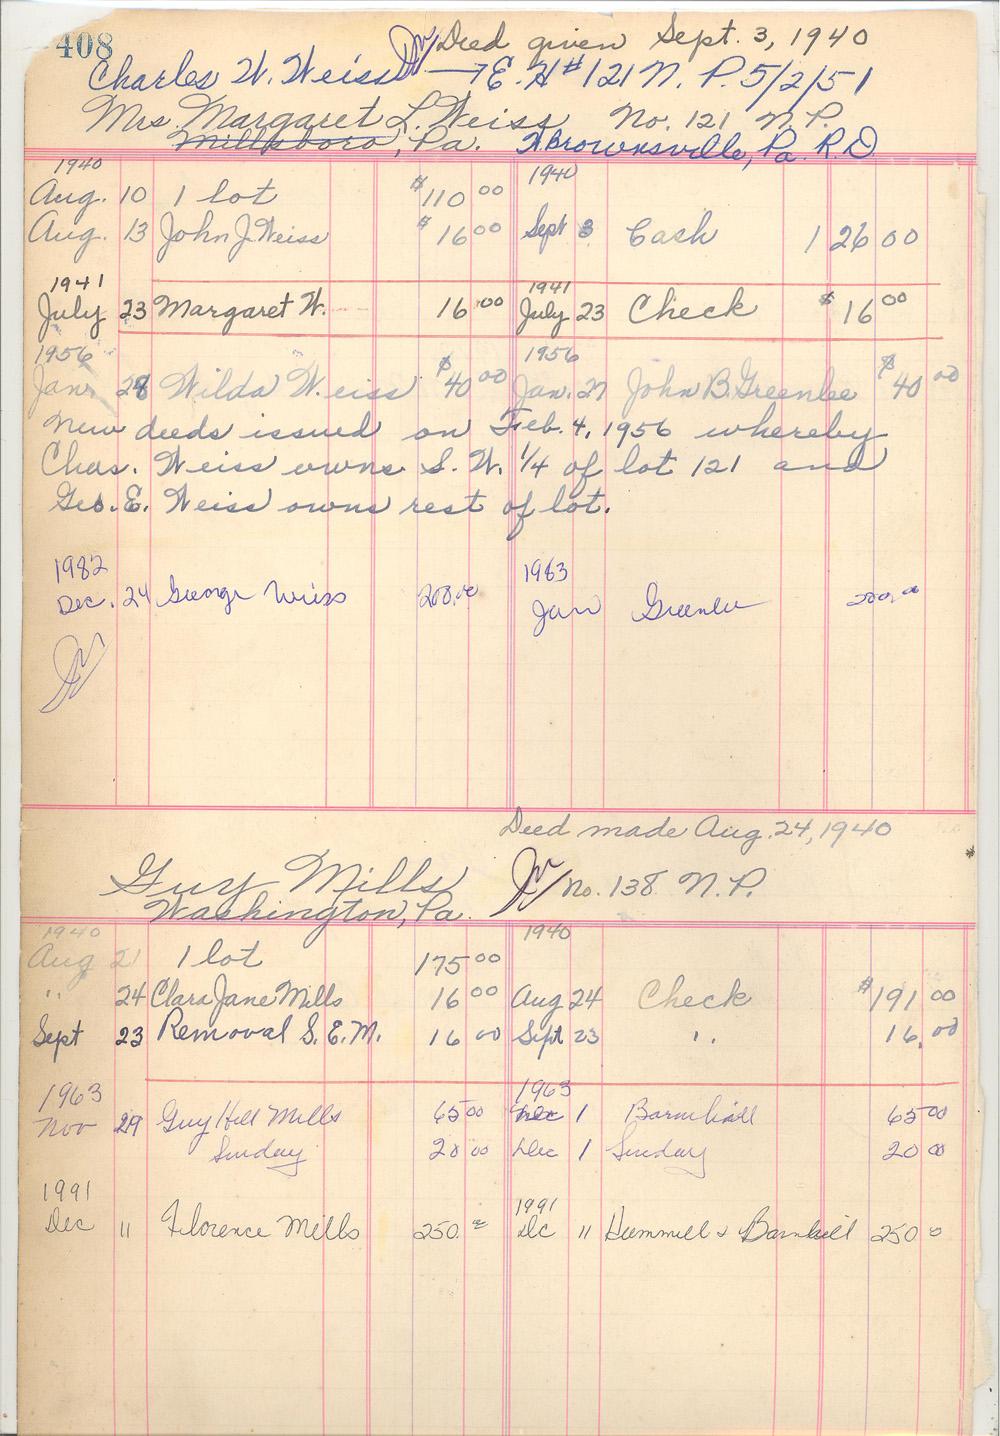 408 Deed given Sept. 3, 1940
Charles W. Weiss → E. H # 121 N. P. 5/2/51
Mrs. Margaret L. Weiss No. 121 N.P.
Millsboro, Pa. W. Brownsville, Pa. R.D.
1940 1940
Aug. 10 1 lot $110 00
Aug. 13 John J. Weiss $16 00 Sept 3 Cash 126 00
1941 1941
July 23 Margaret W. 16 00 July 23 Check $16 00
1956 1956
Jan. 28 Wilda Weiss $40 00 Jan. 27 John B. Greenlee $40 00
New deeds issued on Feb. 4, 1956 whereby
Chas. Weiss owns S. W. 1/4 of lot 121 and
Geo. E. Weiss owns rest of lot.
1982 1983
Dec. 24 George Weiss 200.00 Jan Greenlee 200.00
Deed made Aug. 24, 1940
Guy Mills No. 138 N.P.
Washington, Pa.
1940 1940
Aug 21 1 lot 175 00
" 24 Clara Jane Mills 16 00 Aug 24 Check $191 00
Sept 23 Removal S. E. M. 16 00 Sept 23 " 16.00
1963 1963
Nov 29 Guy Hill Mills 65 00 Dec 1 Barnhill 65 00
Sunday 20 00 Dec 1 Sunday 20 00
1991 1991
Dec 11 Florence Mills 250. Dc 11 Hummell & Barnhill 250 0